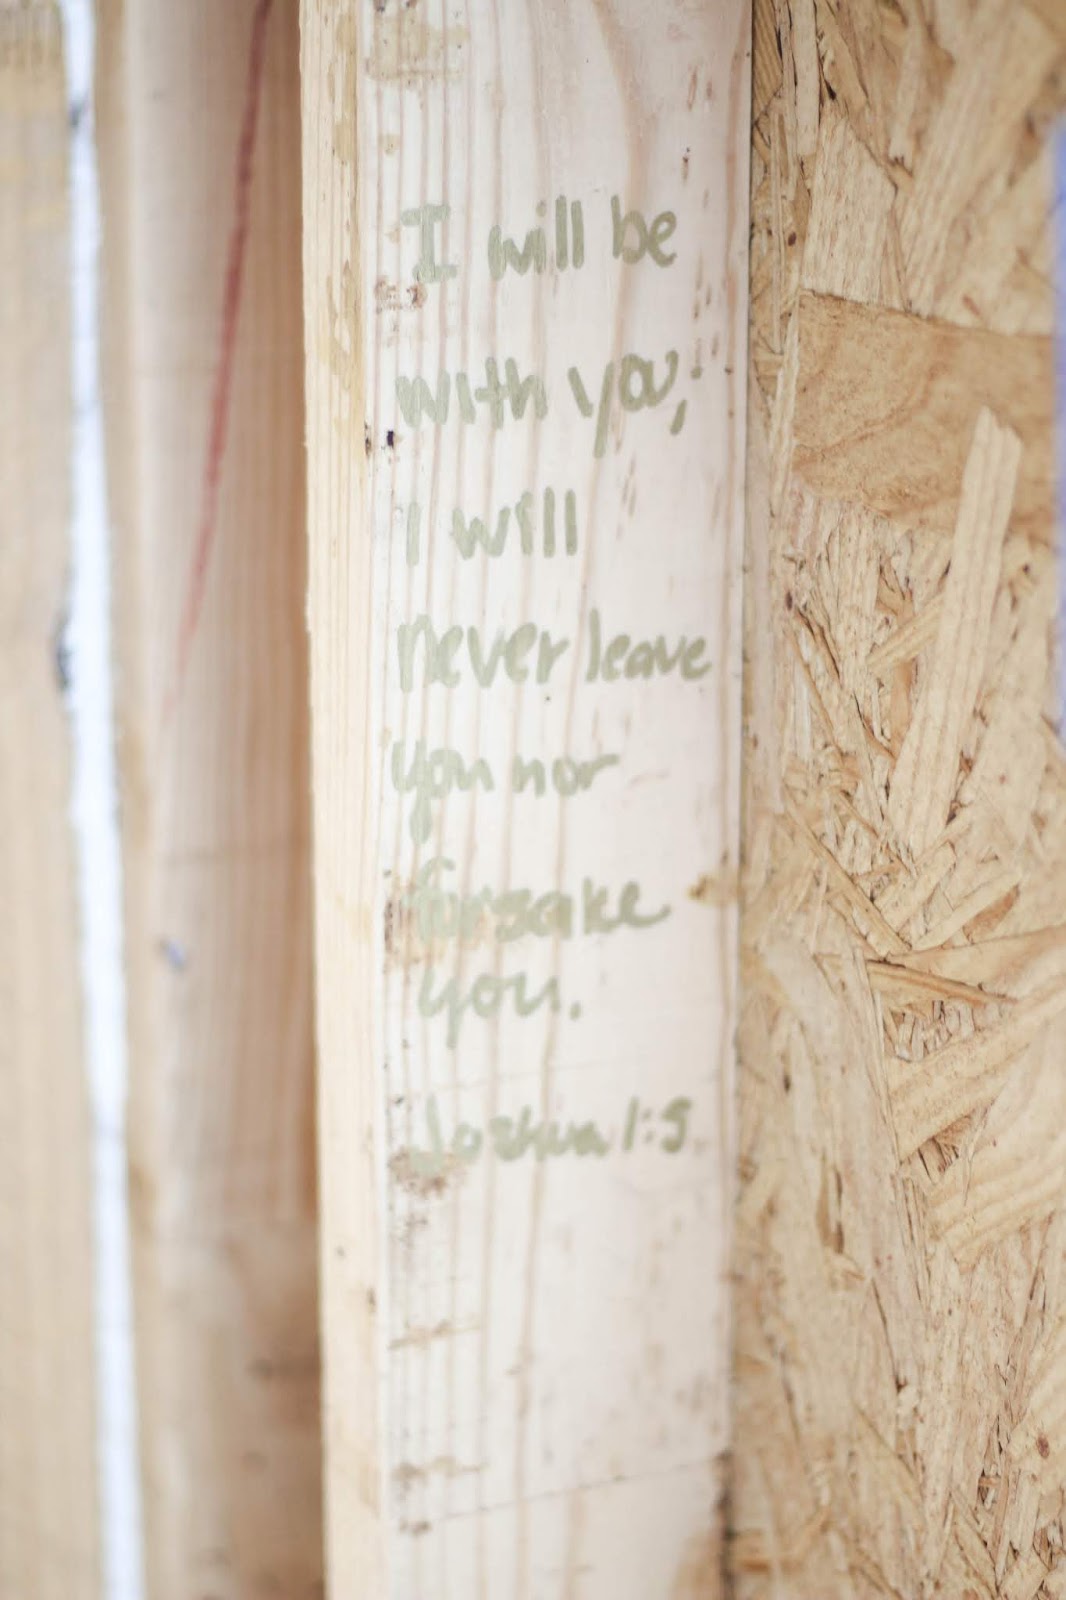 I will be
with you;
I will
never leave
you nor
forsake
you.
Joshua 1:5